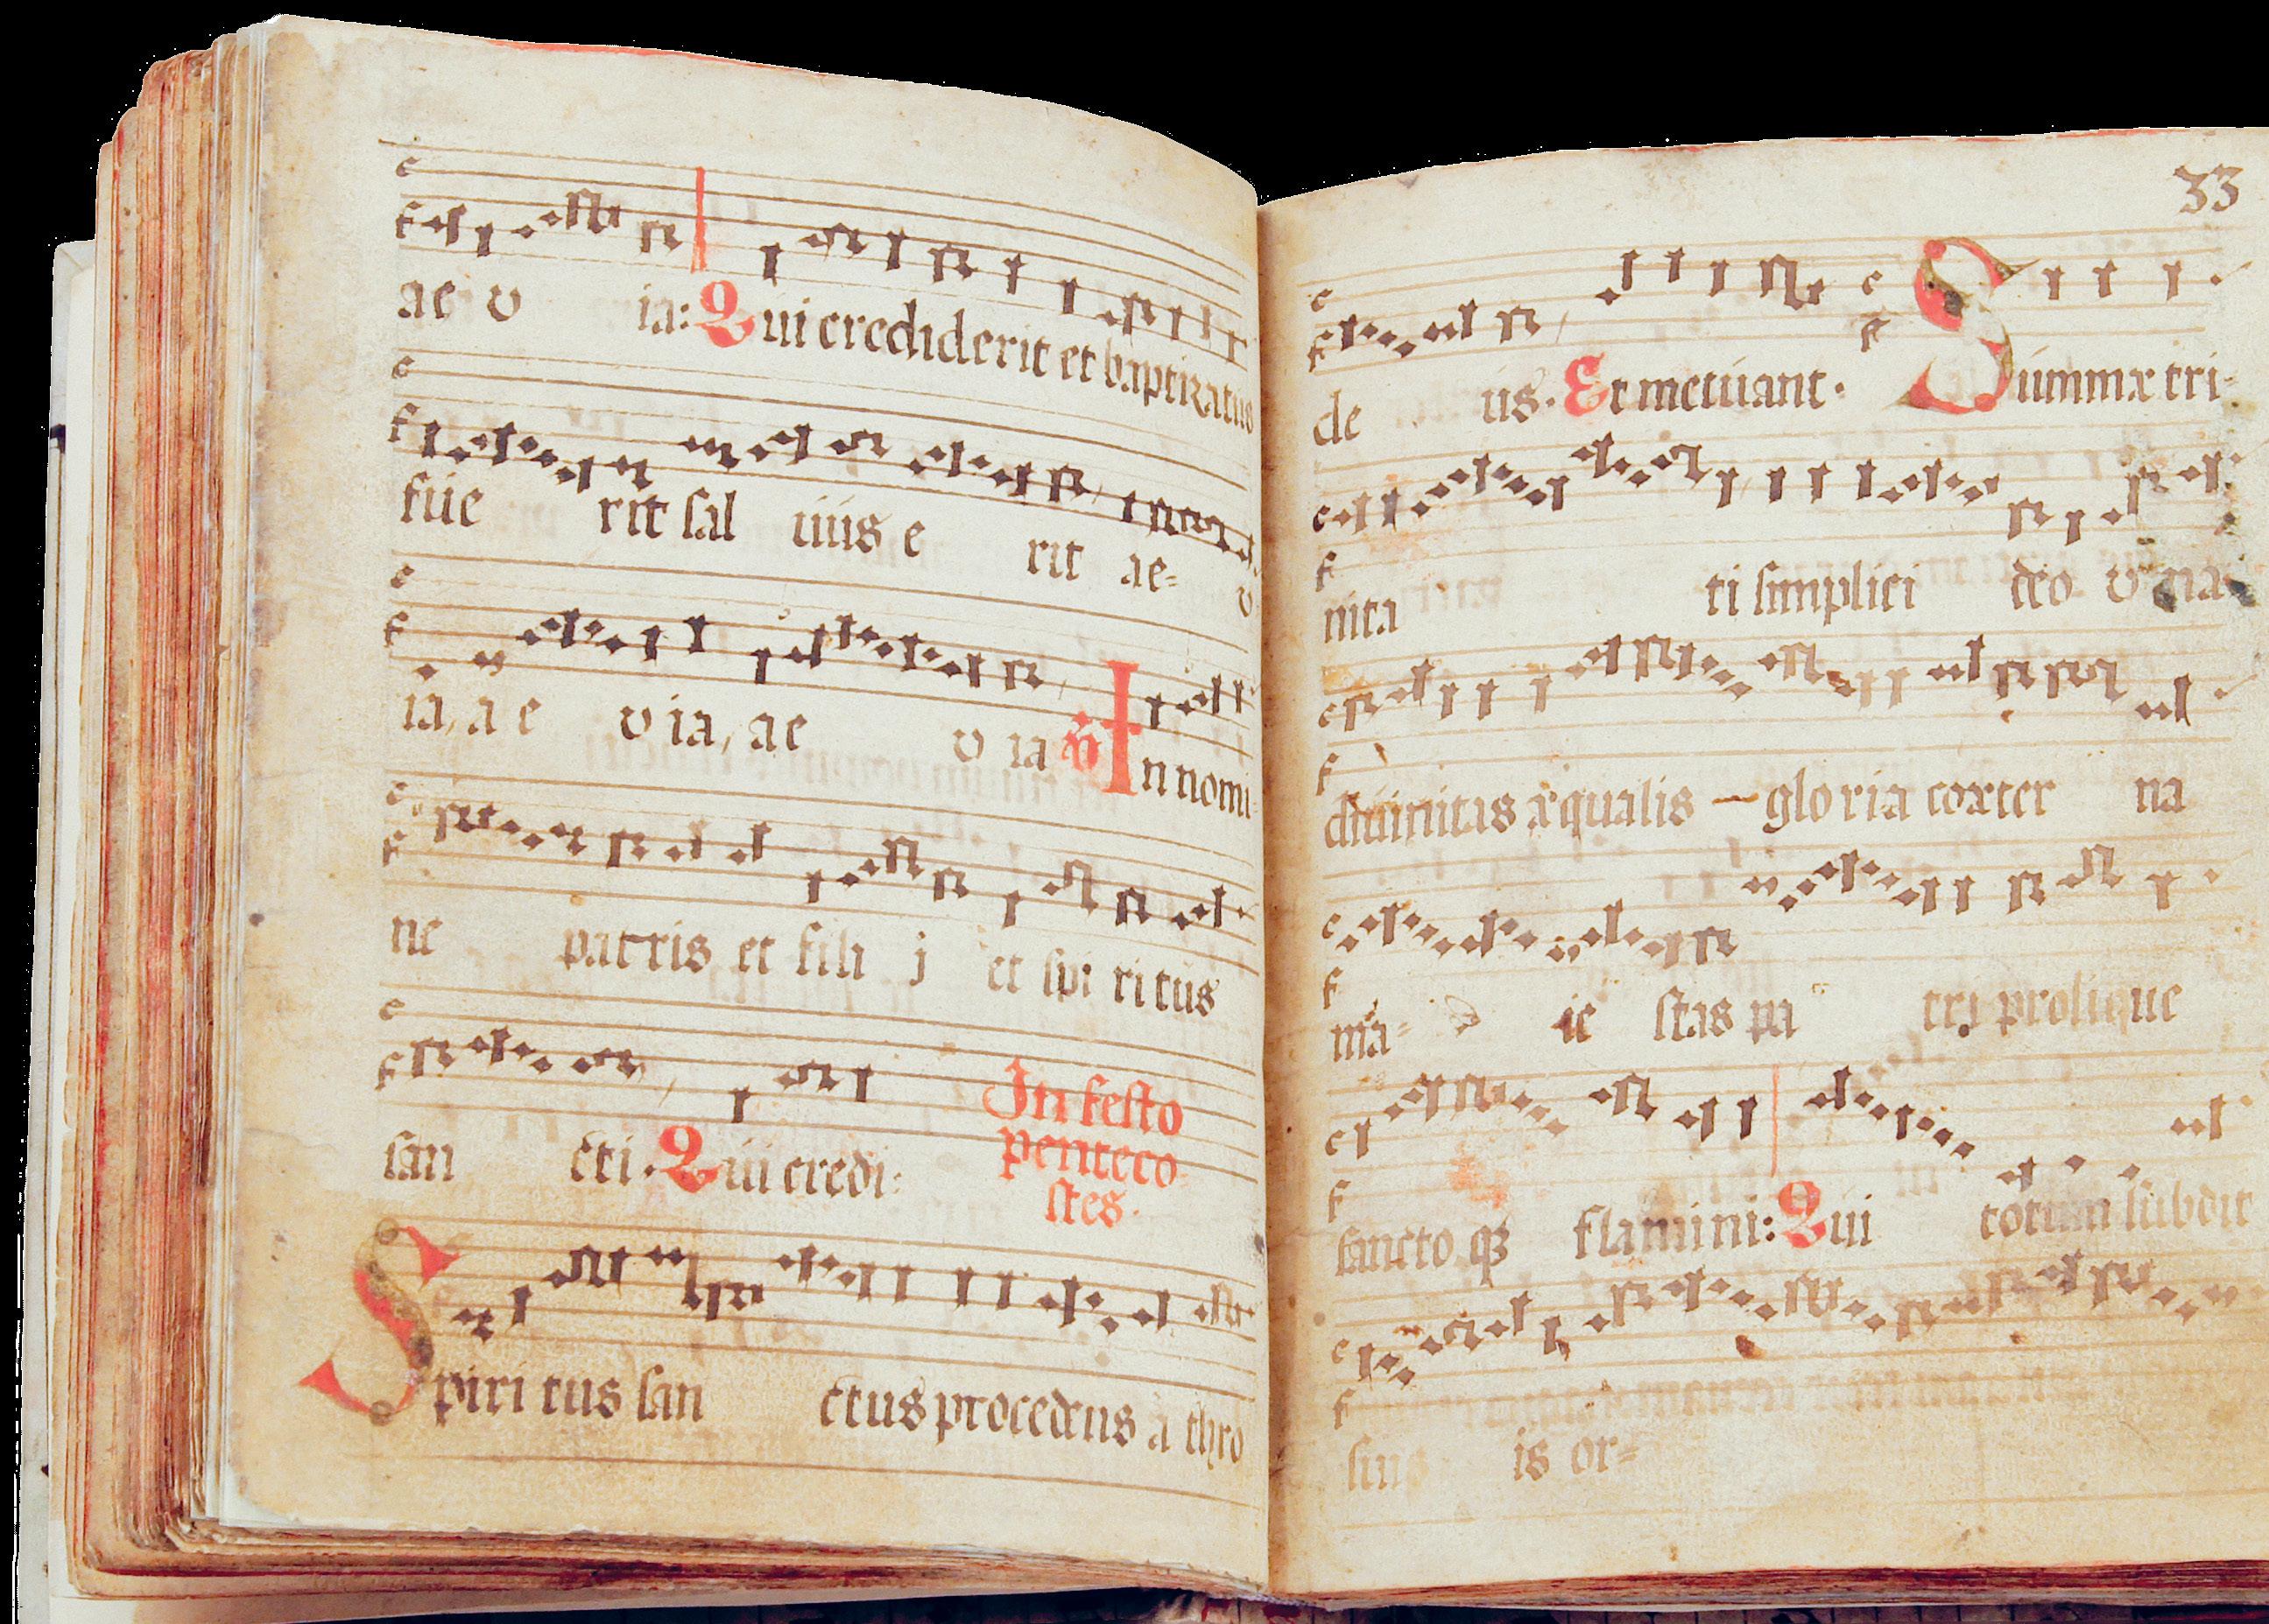 ae v ia: Qui crediderit et baptizatus
fue rit sal uus e rit ae= v
ia, a e v ia, a e v ia In nomi
ne patris et fili j et spi ritus
san cti. Qui credi:
In festo
penteco
stes.
Spiri tus san ctus procedens a thro
33
de us. Et metuant. Summæ tri=
nita ti simplici deo v na
diuinitas æqualis — gloria coæter na
ma= ie stas pa tri prolique
sancto qз flamini: Qui totum subdit
suis is or=